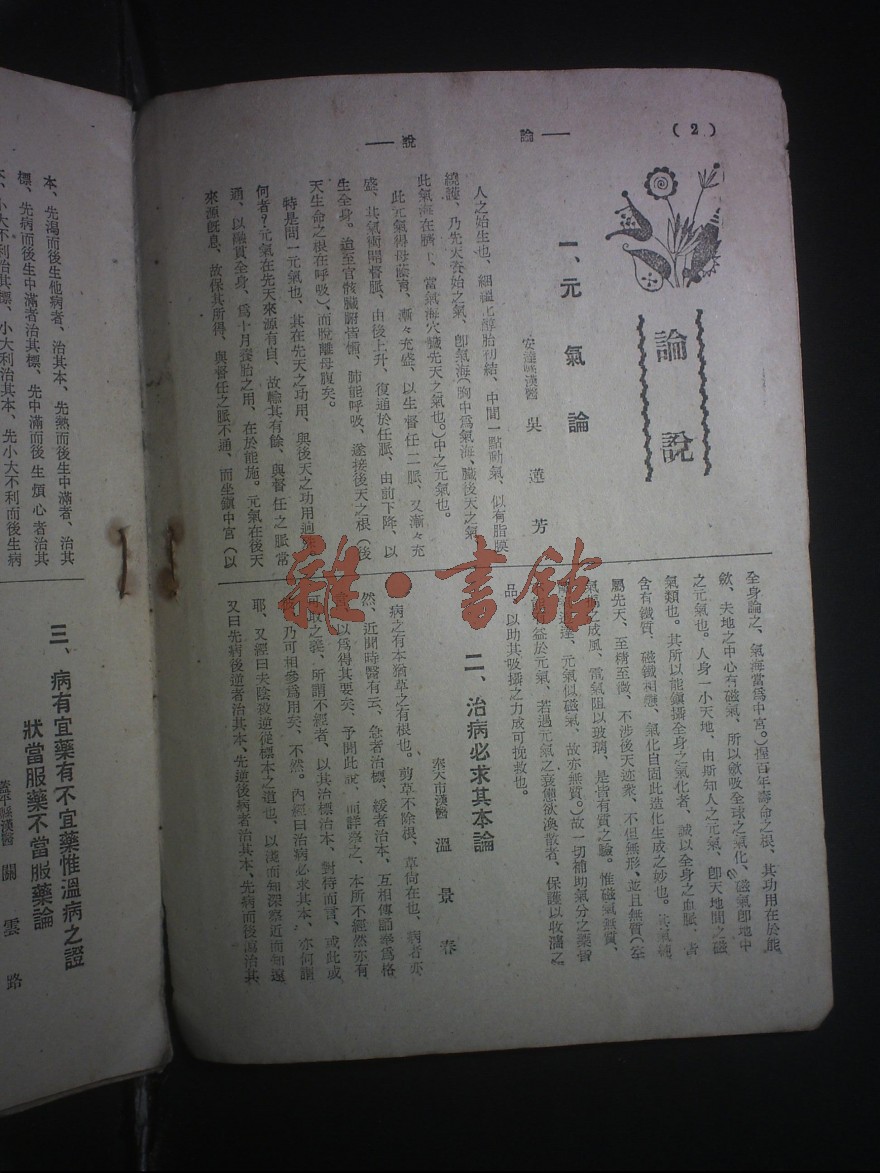 (2)
論
說
論說
一、元氣論
安達縣漢醫 吳蓮芳
人之始生也、絪縕化醇胎初結、中間一點動氣、似有脂膜
繞護、乃先天資始之氣、卽氣海(胸中爲氣海、臟後天之氣
此氣海在臍上、當氣海穴臟先天之氣也。)中之元氣也。
此元氣得母蔭育、漸々充盛、以生督任二脈、又漸々充
盛、其氣衝開督脈、由後上升、復通於任脈、由前下降、以
生全身。迨至官骸臟腑皆備、肺能呼吸、遂接後天之根(後
天生命之根在呼吸)、而脫離母腹矣。
特是同一元氣也、其在先天之功用、與後天之功用逈
何者?元氣在先天來源有自、故輸其有餘、與督任之脈常
通、以融貫全身、爲十月養胎之用、在於能施。元氣在後天
來源旣息、故保其所得、與督任之脈不通、而坐鎭中宮(以
全身論之、氣海當爲中宮。)握百年壽命之根、其功用在於能
歛、夫地之中心有磁氣、所以歛吸全球之氣化、磁氣卽地中
之元氣也。人身一小天地、由斯知人之元氣、卽天地間之磁
氣類也。其所以能鎭攝全身之氣化者、誠以全身之血脈、皆
含有鐵質、磁鐵相應、氣化自固此造化生成之妙也。
屬先天、至精至微、不涉後天迹象、不但無形、並且無質(
氣搧之成風、電氣阻以玻璃、是皆有質之驗。惟磁氣無質、
元氣似磁氣、故亦無質。)故一切補助氣分之藥皆
益於元氣、若遇元氣之衰憊欲渙散者、保護以收濇之
品、以助其吸攝之力或可挽救也。
二、治病必求其本論
奉天市漢醫 溫景春
病之有本猶草之有根也。剪草不除根、草尙在也、病者亦
然、近聞時醫有云、急者治標、緩者治本、互相傳誦奉爲格
以爲得其要矣、予聞此說、而詳察之、本所不經然亦有
可取之義、所謂不經者、以其治標治本、對待而言、或此或
乃可相參爲用矣、不然。內經曰治病必求其本、亦何謂
耶、又經曰夫陰陽逆從標本之道也、以淺而知深察近而知遠
又曰先病後逆者治其本、先逆後病者治其本、先病而後瀉治其
本、先瀉而後生他病者、治其本、先熱而後生中滿者、治其
標、先病而後生中滿者治其標、先中滿而後生煩心者治其
本、小大不利治其標、小大利治其本、先小大不利而後生病
三、病有宜藥有不宜藥惟溫病之證
狀當服藥不當服藥論
蓋平縣漢醫 關雲路
雜·書館